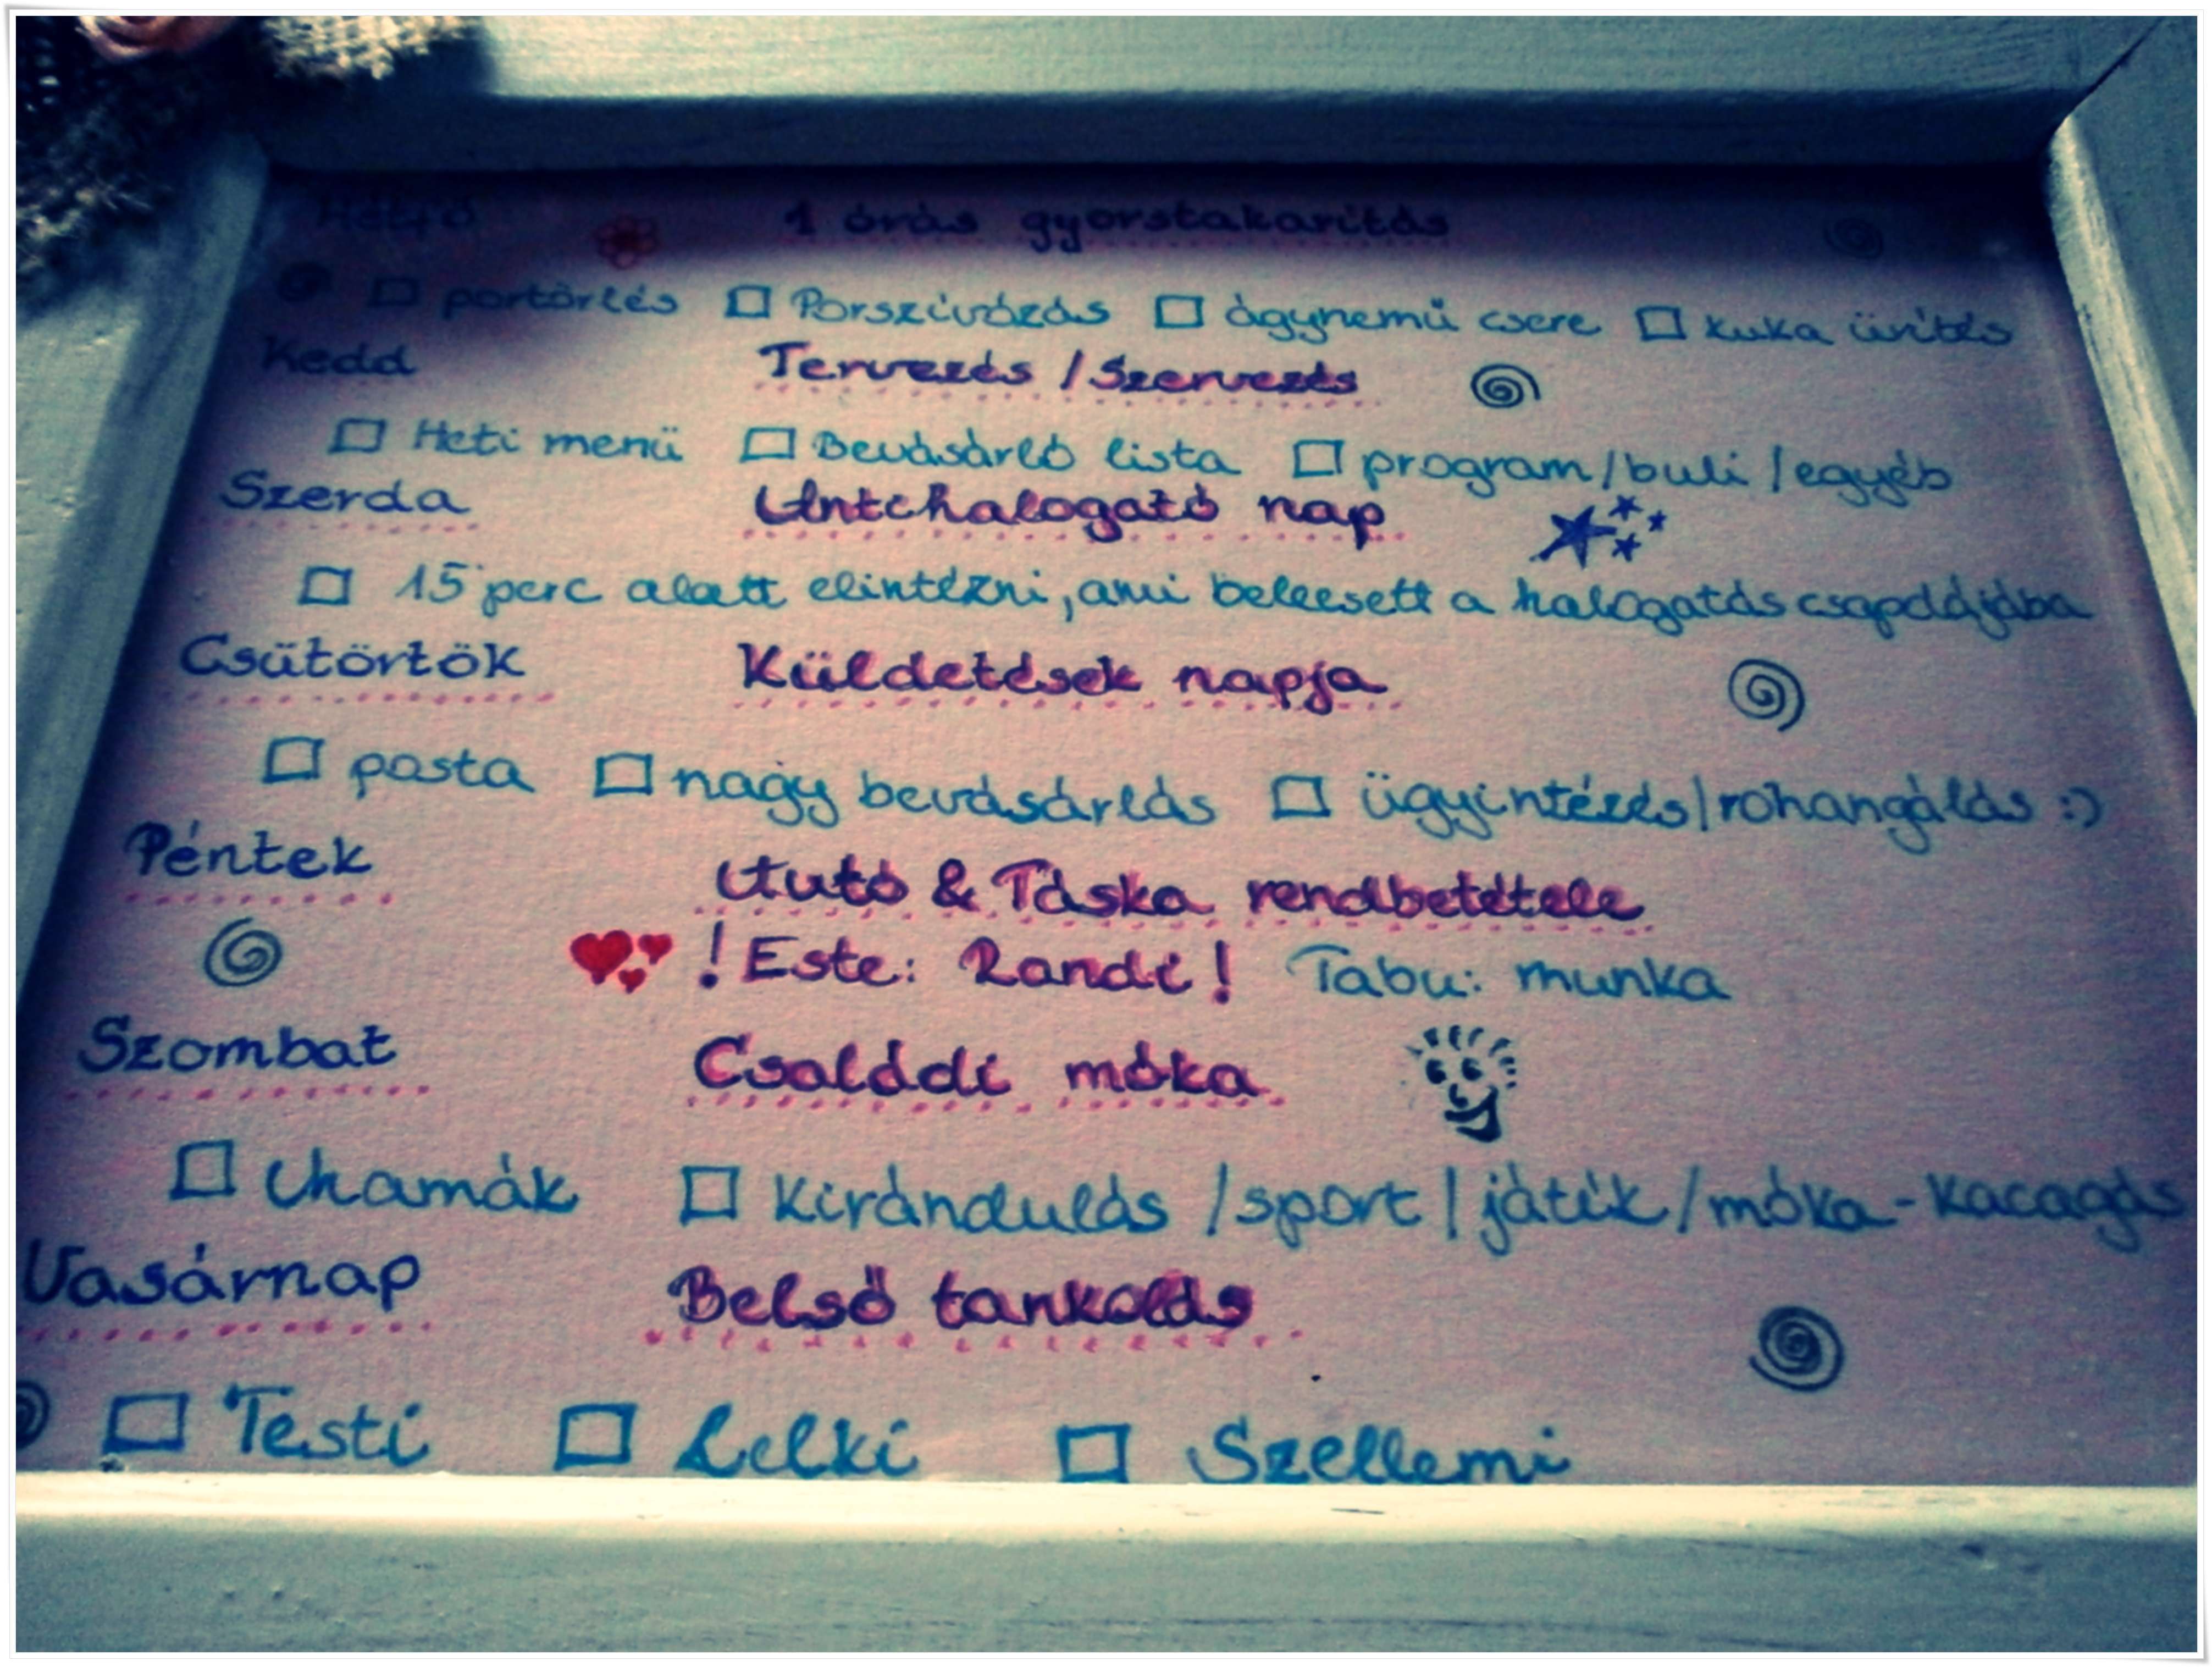 Hétfő 1 órás gyorstakarítás
□ portörlés □ Porszívózás □ ágynemű csere □ kuka ürítés
Kedd Tervezés / Szervezés
□ Heti menü □ Bevásárló lista □ program / buli / egyéb
Szerda Antihalogató nap
□ 15 perc alatt elintézni, ami beleesett a halogatás csapdájába
Csütörtök Küldetések napja
□ posta □ nagy bevásárlás □ ügyintézés / rohangálás :)
Péntek Autó & Táska rendbetétele
! Este: Randi ! Tabu: munka
Szombat Családi móka
□ Unamák □ Kirándulás / sport / játék / móka - kacagás
Vasárnap Belső tankolás
□ Testi □ Lelki □ Szellemi